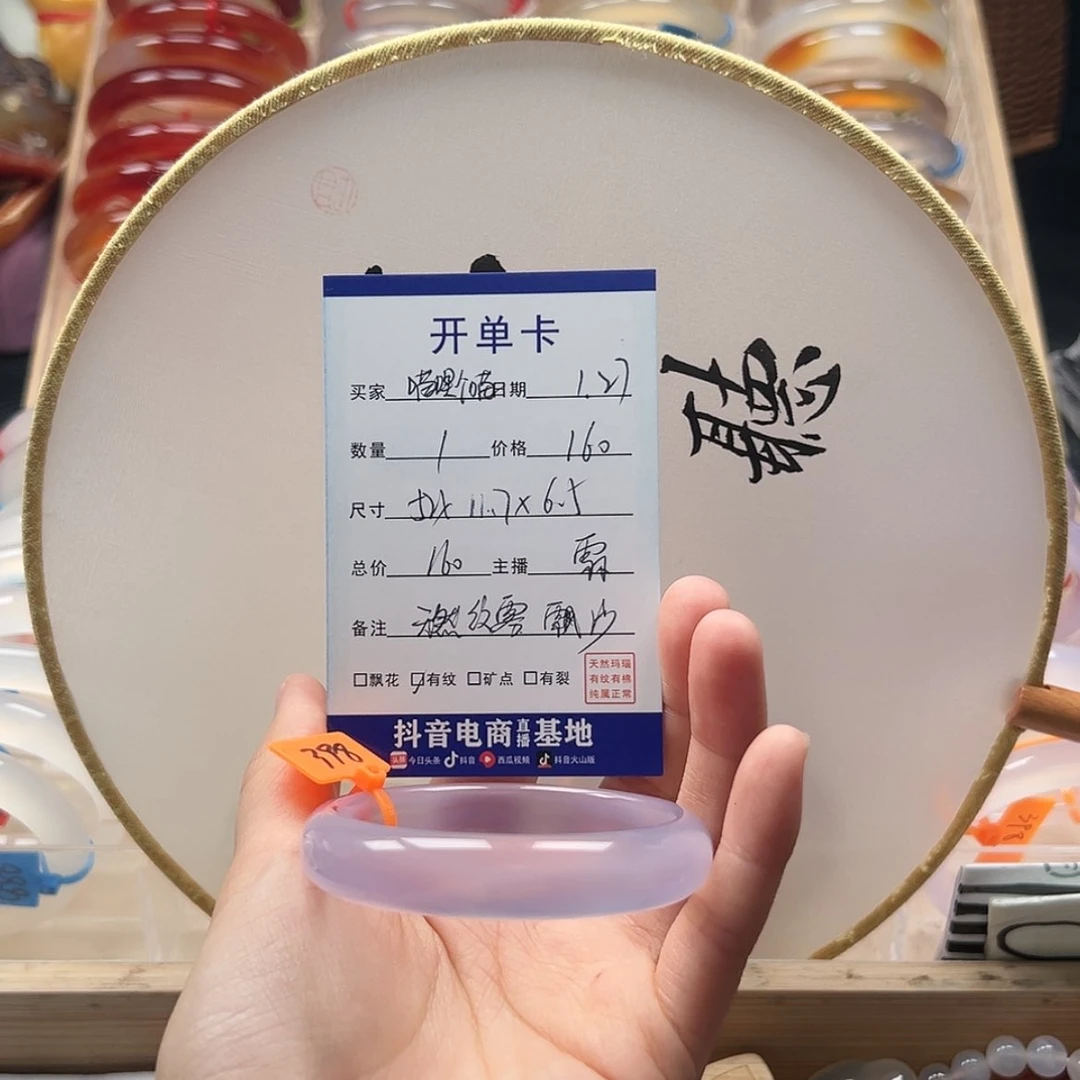 开单卡
买家 喵哩个喵 日期 1.27
数量 1 价格 160
尺寸 52x 11.7x 6.5
总价 160 主播
备注 飘沙
□飘花 □有纹 □矿点 □有裂
天然玛瑙
有纹有棉
纯属正常
抖音电商直播基地
头条 今日头条 抖音 西瓜视频 抖音火山版
398
聽
398